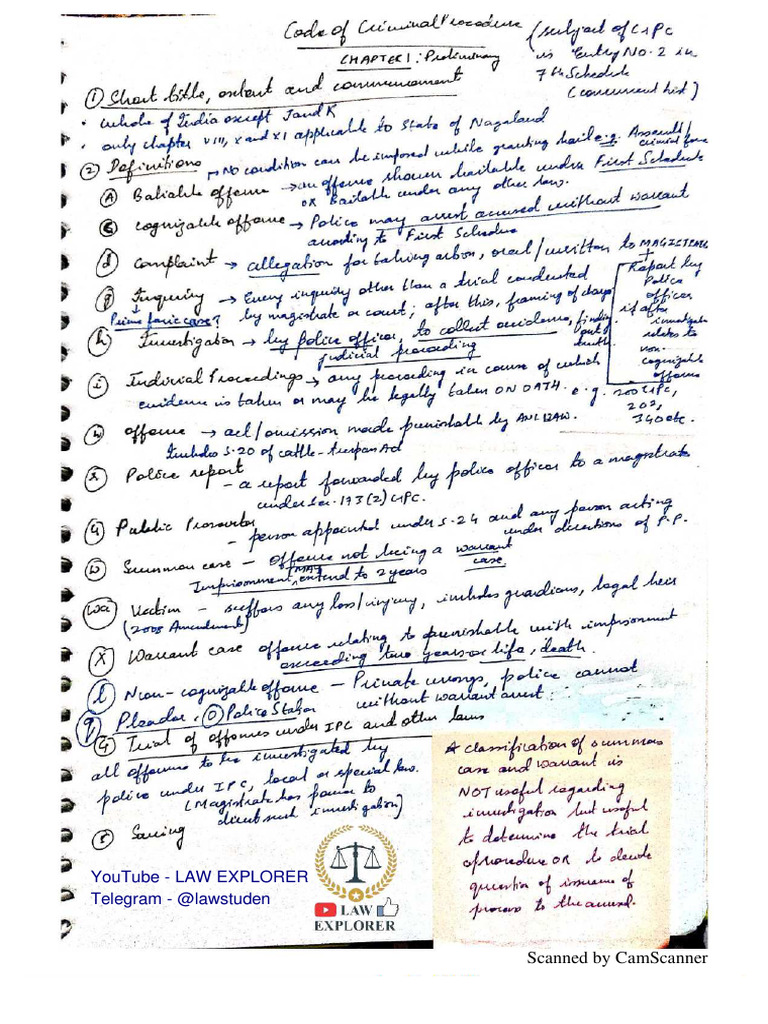 Code of Criminal Procedure (subject of CrPC
is Entry No. 2 in
7th Schedule
(concurrent list)
CHAPTER 1: Preliminary
① Short title, extent and commencement
• whole of India except J and K
• only chapter VIII, X and XI applicable to State of Nagaland
② Definitions → No condition can be imposed while granting bail e.g. Assault/
criminal force
Ⓐ Bailable offence → an offence shown bailable under First Schedule
OR Bailable under any other law.
Ⓒ cognizable offence → Police may arrest accused without warrant
according to First Schedule
ⓓ Complaint → allegation for taking action, oral/written to MAGISTRATE
ⓖ Inquiry → Every inquiry other than a trial conducted
Prime facie case? by magistrate or court; after this, framing of charge
Report by
Police
officer
if after
investigation
relates to
non-
cognizable
offence
ⓗ Investigation → by police officer, to collect evidence, finding
out
truth.
judicial proceeding
ⓘ Judicial Proceedings → any proceeding in course of which
evidence is taken or may be legally taken ON OATH. e.g. 200 CrPC,
202,
340 etc.
ⓝ offence → act/omission made punishable by ANY LAW.
Includes S.20 of cattle-trespass Act
ⓡ Police report
- a report forwarded by police officer to a magistrate
under Sec. 173(2) CrPC.
ⓤ Public Prosecutor
- person appointed under S.24 and any person acting
under directions of P.P.
ⓦ Summon case - offence not being a warrant
case
Imprisonment, may extend to 2 years
(wa) Victim - suffers any loss/injury, includes guardian, legal heir
(2008 Amendment)
ⓧ Warrant case offence relating to punishable with imprisonment
exceeding two years or life, death.
ⓛ Non-cognizable offence - Private wrongs, police cannot
without warrant arrest.
ⓠ Pleader, ⓞ Police Station
④ Trial of offences under IPC and other laws
all offences to be investigated by
police under IPC, local or special law.
(Magistrate has power to
direct such investigation)
⑤ Saving
A classification of summons
case and warrant is
NOT useful regarding
investigation but useful
to determine the trial
of procedure OR to decide
question of issuance of
process to the accused.
YouTube - LAW EXPLORER
Telegram - @lawstuden
LAW
EXPLORER
Scanned by CamScanner